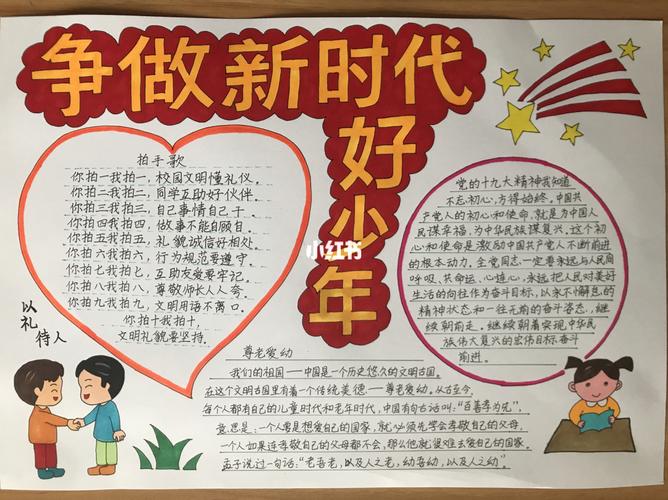 争做新时代
好少年
小红书
拍手歌
你拍一我拍一,校园文明懂礼仪。
你拍二我拍二,同学互助好伙伴。
你拍三我拍三,自己事情自己干。
你拍四我拍四,做事不能自顾自。
你拍五我拍五,礼貌诚信好相处。
你拍六我拍六,行为规范要遵守。
你拍七我拍七,互助友爱要牢记。
你拍八我拍八,尊敬师长人人夸。
你拍九我拍九,文明用语不离口。
你拍十我拍十,
文明礼貌要坚持。
以
礼
待人
党的十九大精神我知道
不忘初心,方得始终。中国共
产党人的初心和使命,就是为中国人
民谋幸福,为中华民族谋复兴。这个初
心和使命是激励中国共产党人不断前进
的根本动力。全党同志一定要永远与人民同
呼吸、共命运、心连心,永远把人民对美好
生活的向往作为奋斗目标,以永不懈怠的
精神状态和一往无前的奋斗姿态,继
续朝前走。继续朝着实现中华民
族伟大复兴的宏伟目标奋斗
前进。
尊老爱幼
我们的祖国——中国是一个历史悠久的文明古国。
在这个文明古国里有着一个传统美德——尊老爱幼。从古至今,
每个人都有自己的儿童时代和老年时代,中国有句古话叫:“百善孝为先”,
意思是:一个人要是想爱自己的国家,就必须先学会孝敬自己的父母,
一个人如果连孝敬自己的父母都不会,那么他就更难去爱自己的国家。
孟子说过一句话:“老吾老,以及人之老;幼吾幼,以及人之幼”。